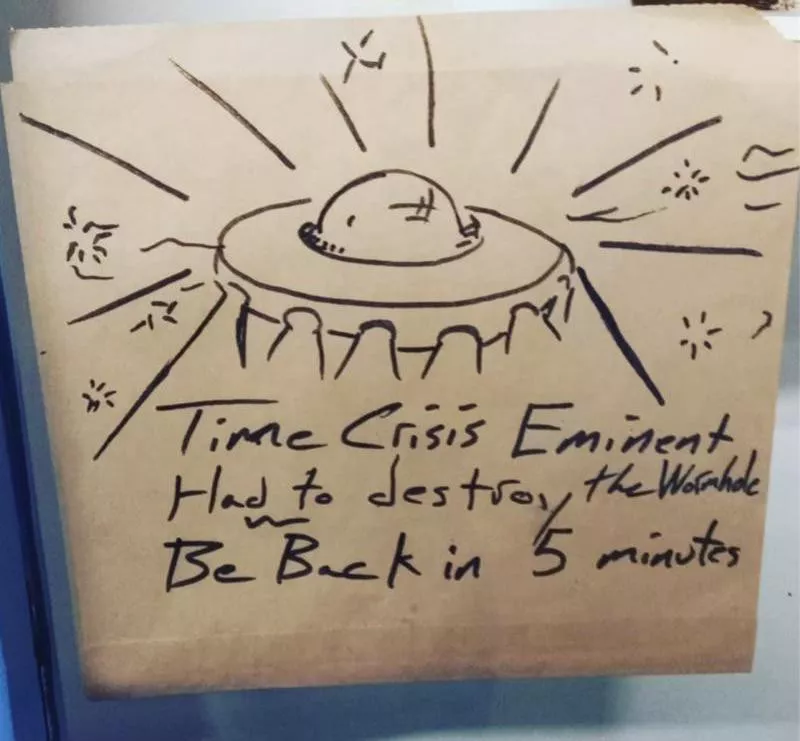 Time Crisis Eminent
Had to destroy the Wormhole
Be Back in 5 minutes